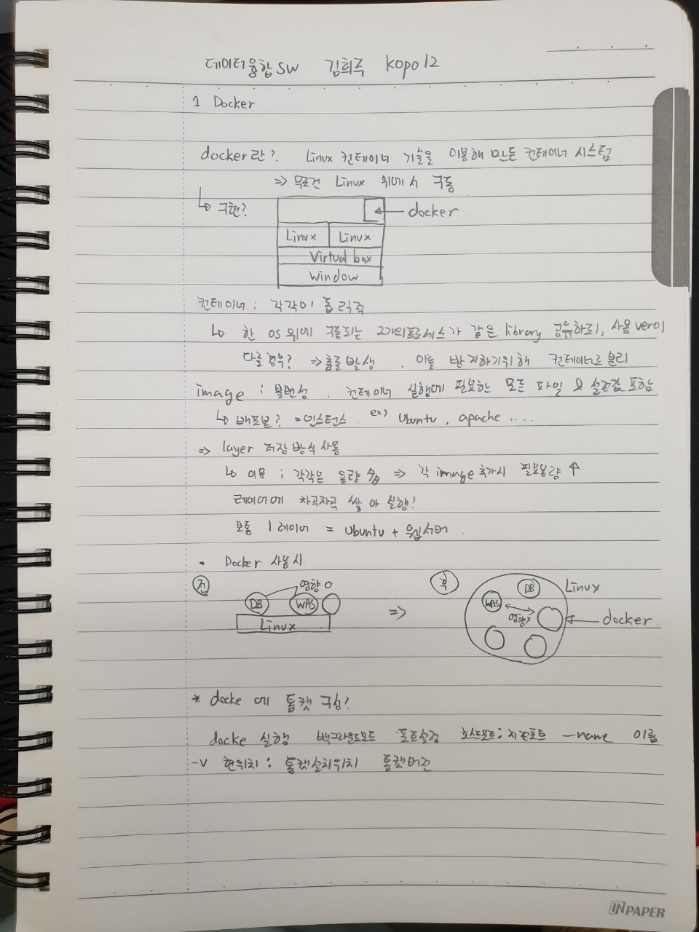 데이터융합SW 김희주 kopo12
1 Docker
docker란? Linux 컨테이너 기술을 이용해 만든 컨테이너 시스템
=> 무조건 Linux 위에서 구동
↳ 구현?
docker
Linux Linux
Virtual box
Window
컨테이너 : 각각이 독립적
↳ 한 OS 위에 구동되는 2개의프로세스가 같은 library 공유하되, 사용 ver이
다를경우? => 충돌발생. 이를 방지하기위해 컨테이너로 분리
image : 불변성. 컨테이너 실행에 필요한 모든 파일 & 설정값 포함
↳ 배포본? = 인스턴스 ex) Ubuntu, apache ....
=> layer 저장 방식 사용
↳ 이유 ; 각각은 용량 => 각 image 추가시 필요용량 ↑
레이어에 차곡차곡 쌓아 실행!
보통 1레이어 = Ubuntu + 웹서버.
• Docker 사용시
전 영향 o
DB WAS
Linux
=>
후 DB Linux
WAS 영향x
docker
* docke 에 톰캣 구성?
docke 실행 백그라운드모드 포트설정 호스트포트: --name 이름
-v 현위치 : 톰캣설치위치 톰캣버전
INPAPER